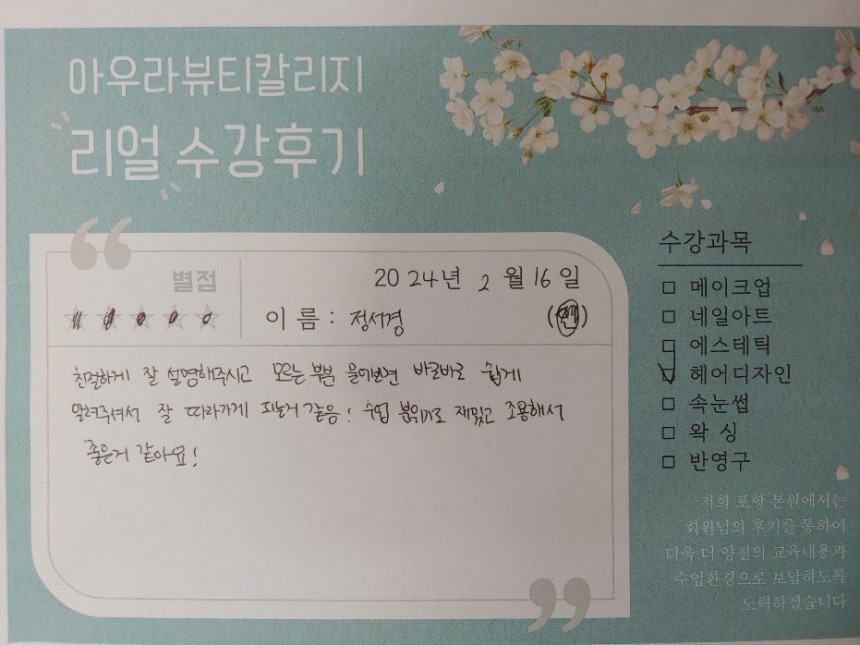 아우라뷰티칼리지
리얼 수강후기
별점
2024년 2월 16일
이름 : 정서경
수강과목
□ 메이크업
□ 네일아트
□ 에스테틱
☑ 헤어디자인
□ 속눈썹
□ 왁싱
□ 반영구
친절하게 잘 설명해주시고 모르는 부분 물어보면 바로바로 쉽게
알려주셔서 잘 따라가게 되는거 같음! 수업 분위기도 재밌고 조용해서
좋은거 같아요!
저희 포항 본원에서는
회원님의 후기를 통하여
더욱 더 양질의 교육내용과
수업환경으로 보답하도록
노력하겠습니다